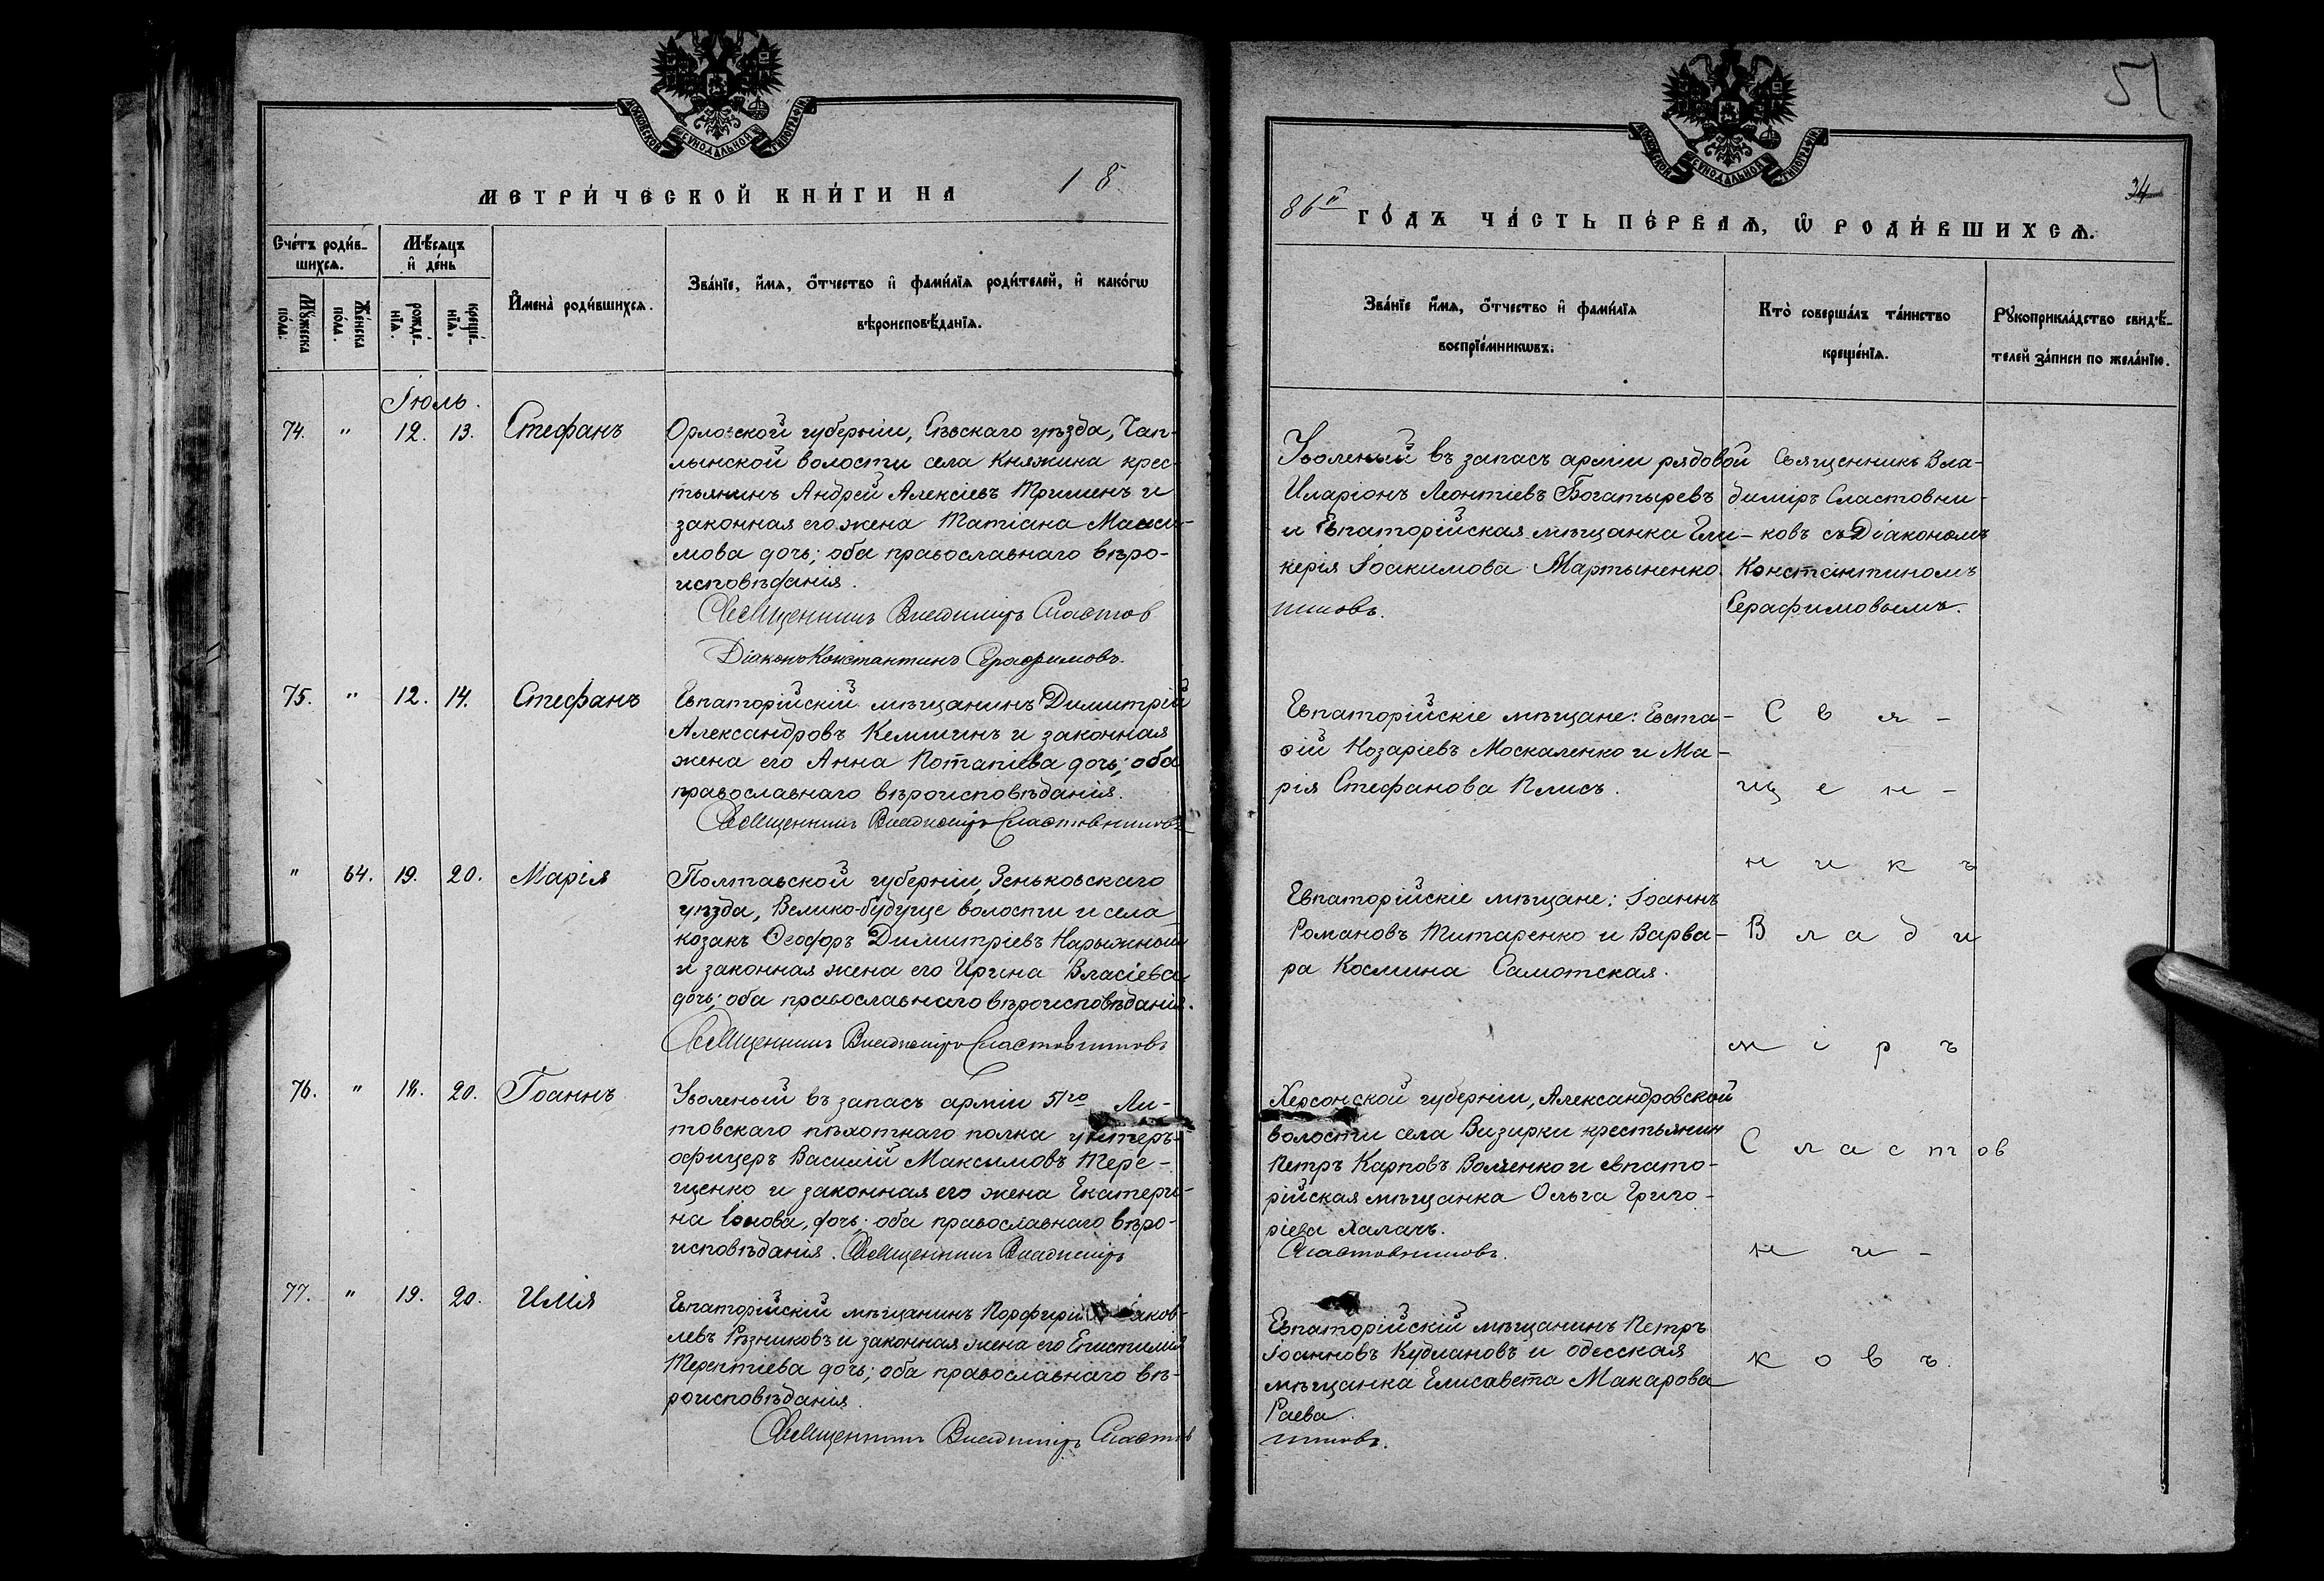 МОСКОВСКОЙ СѴНОДАЛЬНОЙ ТИПОГРАФІИ
МЕТРИ́ЧЕСКОЙ КНИ́ГИ НА 18
Сче́тъ роди́в-
шихсѧ.
Мѣ́сѧцъ
и҆ де́нь
Мꙋ́жеска
по́ла.
Же́нска
по́ла.
рожде́-
нїѧ.
креще́-
нїѧ.
И҆мена̀ роди́вшихсѧ.
Зва́нїе, и҆́мѧ, ѻ҆́тчество и҆ фами́лїѧ роди́телей, и҆ како́гѡ
вѣроисповѣ́данїѧ.
Іюль.
74. " 12. 13. Стефанъ
Орловской губерніи, Сѣвскаго уѣзда, Чап-
лынской волости села Княжина крес-
тьянинъ Андрей Алексіевъ Тришенъ и
законная его жена Татіана Макси-
мова дочь; оба православнаго вѣро-
исповѣданія.
Священникъ Владиміръ Сластов
Діаконъ Константинъ Серафимовъ.
75. " 12. 14. Стефанъ
Евпаторійскій мѣщанинъ Димитрій
Александровъ Кемшинъ и законная
жена его Анна Потапіева дочь; оба
православнаго вѣроисповѣданія.
Священникъ Владиміръ Сластовниковъ
" 64. 19. 20. Марія
Полтавской губерніи, Зеньковскаго
уѣзда, Велико-будуще волости и села
козакъ Ѳеодоръ Димитріевъ Нарыжный
и законная жена его Ирина Власіева
дочь; оба православнаго вѣроисповѣданія.
Священникъ Владиміръ Сластовниковъ
76. " 18. 20. Іоаннъ
Уволеный въ запасъ арміи 51го Ли-
товскаго пѣхотнаго полка унтеръ-
офицеръ Василій Максимовъ Тере-
щенко и законная его жена Екатери-
на Іонова, дочь; оба православнаго вѣро-
исповѣданія. Священникъ Владиміръ
77. " 19. 20. Илія
Евпаторійскій мѣщанинъ Порфирій Іаков-
левъ Рѣзниковъ и законная жена его Епистимія
Терентіева дочь; оба православнаго вѣ-
роисповѣданія.
Священникъ Владиміръ Сластов
51
МОСКОВСКОЙ СѴНОДАЛЬНОЙ ТИПОГРАФІИ
34
86й ГО́ДЪ ЧА́СТЬ ПЕ́РВАѦ, Ѡ҆ РОДИ́ВШИХСѦ.
Зва́нїе и҆́мѧ, ѻ҆́тчество и҆ фами́лїѧ
воспрїе́мникѡвъ.
Кто̀ соверша́лъ та́инство
креще́нїѧ.
Рꙋкоприкла́дство свидѣ́-
телей за́писи по жела́нїю.
Уволеный въ запасъ арміи рядовой
Иларіонъ Леонтіевъ Богатыревъ
и Евпаторійская мѣщанка Гли-
керія Іоакимова Мартыненко.
никовъ.
Священникъ Вла-
диміръ Сластовни-
ковъ съ Діакономъ
Константиномъ
Серафимовымъ.
Евпаторійскіе мѣщане: Евста-
фій Назаріевъ Москаленко и Ма-
рія Стефанова Плисъ.
Евпаторійскіе мѣщане: Іоаннъ
Романовъ Титаренко и Варва-
ра Космина Самотская.
Херсонской губерніи, Александровской
волости села Визирки крестьянин
Петръ Карповъ Волченко и евпато-
рійская мѣщанка Ольга Григо-
ріева Халачъ.
Сластовниковъ.
Евпаторійскій мѣщанинъ Петръ
Іоанновъ Кудлановъ и одесская
мѣщанка Елисавета Макарова
Раева.
никовъ.
С в я -
щ е н -
н и к ъ
В л а д и
м і р ъ
С л а с т ов
н и -
к о в ъ.